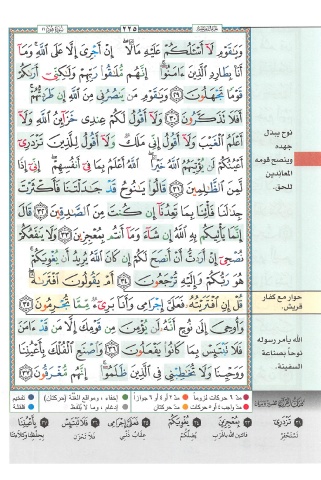 ٢٢٥
وَيَٰقَوْمِ لَآ أَسْـَٔلُكُمْ عَلَيْهِ مَالًا ۖ إِنْ أَجْرِىَ إِلَّا عَلَى ٱللَّهِ ۚ وَمَآ
أَنَا۠ بِطَارِدِ ٱلَّذِينَ ءَامَنُوٓا۟ ۚ إِنَّهُم مُّلَٰقُوا۟ رَبِّهِمْ وَلَٰكِنِّىٓ أَرَىٰكُمْ
قَوْمًا تَجْهَلُونَ ﴿٢٩﴾ وَيَٰقَوْمِ مَن يَنصُرُنِى مِنَ ٱللَّهِ إِن طَرَدتُّهُمْ ۚ
أَفَلَا تَذَكَّرُونَ ﴿٣٠﴾ وَلَآ أَقُولُ لَكُمْ عِندِى خَزَآئِنُ ٱللَّهِ وَلَآ
أَعْلَمُ ٱلْغَيْبَ وَلَآ أَقُولُ إِنِّى مَلَكٌ وَلَآ أَقُولُ لِلَّذِينَ تَزْدَرِىٓ
أَعْيُنُكُمْ لَن يُؤْتِيَهُمُ ٱللَّهُ خَيْرًا ۖ ٱللَّهُ أَعْلَمُ بِمَا فِىٓ أَنفُسِهِمْ ۖ إِنِّىٓ إِذًا
لَّمِنَ ٱلظَّٰلِمِينَ ﴿٣١﴾ قَالُوا۟ يَٰنُوحُ قَدْ جَٰدَلْتَنَا فَأَكْثَرْتَ
جِدَٰلَنَا فَأْتِنَا بِمَا تَعِدُنَآ إِن كُنتَ مِنَ ٱلصَّٰدِقِينَ ﴿٣٢﴾ قَالَ
إِنَّمَا يَأْتِيكُم بِهِ ٱللَّهُ إِن شَآءَ وَمَآ أَنتُم بِمُعْجِزِينَ ﴿٣٣﴾ وَلَا يَنفَعُكُمْ
نُصْحِىٓ إِنْ أَرَدتُّ أَنْ أَنصَحَ لَكُمْ إِن كَانَ ٱللَّهُ يُرِيدُ أَن يُغْوِيَكُمْ ۚ
هُوَ رَبُّكُمْ وَإِلَيْهِ تُرْجَعُونَ ﴿٣٤﴾ أَمْ يَقُولُونَ ٱفْتَرَىٰهُ ۖ
قُلْ إِنِ ٱفْتَرَيْتُهُۥ فَعَلَىَّ إِجْرَامِى وَأَنَا۠ بَرِىٓءٌ مِّمَّا تُجْرِمُونَ ﴿٣٥﴾
وَأُوحِىَ إِلَىٰ نُوحٍ أَنَّهُۥ لَن يُؤْمِنَ مِن قَوْمِكَ إِلَّا مَن قَدْ ءَامَنَ
فَلَا تَبْتَئِسْ بِمَا كَانُوا۟ يَفْعَلُونَ ﴿٣٦﴾ وَٱصْنَعِ ٱلْفُلْكَ بِأَعْيُنِنَا
وَوَحْيِنَا وَلَا تُخَٰطِبْنِى فِى ٱلَّذِينَ ظَلَمُوٓا۟ ۚ إِنَّهُم مُّغْرَقُونَ ﴿٣٧﴾
نوح يبذل
جهده
وينصح قومه
المعاندين
للحق.
حوار مع كفار
قريش.
الله يأمر رسوله
نوحاً بصناعة
السفينة.
مدّ ٦ حركات لزوماً
مدّ ٢ أو ٤ أو ٦ جوازاً
إخفاء، ومواقع الغُنَّة (حركتان)
تفخيم
مدّ حركتان
إدغام، وما لا يُلفَظ
قلقلة
تَزْدَرِى
تَسْتَحْقِرُ
بِمُعْجِزِينَ
يُغْوِيَكُمْ
يُضِلَّكُمْ
فَعَلَىَّ إِجْرَامِى
عِقَابُ ذَنْبِى
فَلَا تَبْتَئِسْ
فَلَا تَحْزَنْ
بِأَعْيُنِنَا